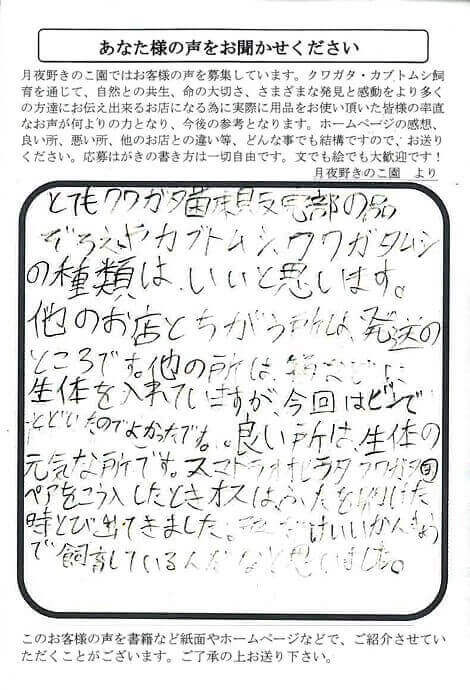 あなた様の声をお聞かせください
月夜野きのこ園ではお客様の声を募集しています。クワガタ・カブトムシ飼
育を通じて、自然との共生、命の大切さ、さまざまな発見と感動をより多く
の方達にお伝え出来るお店になる為に実際に用品をお使い頂いた皆様の率直
なお声が何よりの力となり、今後の参考となります。ホームページの感想、
良い所、悪い所、他のお店との違い等、どんな事でも結構ですので、お送り
ください。応募はがきの書き方は一切自由です。文でも絵でも大歓迎です！
月夜野きのこ園　より
とてもクワガタ菌床販売部の品
ぞろえやカブトムシ、クワガタムシ
の種類は、いいと思います。
他のお店とちがう所は、発送の
ところです。他の所は、箱などに
生体を入れていますが、今回はビンで
とどいたのでよかったです。良い所は、生体の
元気な所です。スマトラオオヒラタクワガタ
ペアをこう入したときオスは、ふたを開けた
時とび出てきました。
で飼育している人だなと思いました。
このお客様の声を書籍など紙面やホームページなどで、ご紹介させてい
ただくことがございます。ご了承の上お送り下さい。